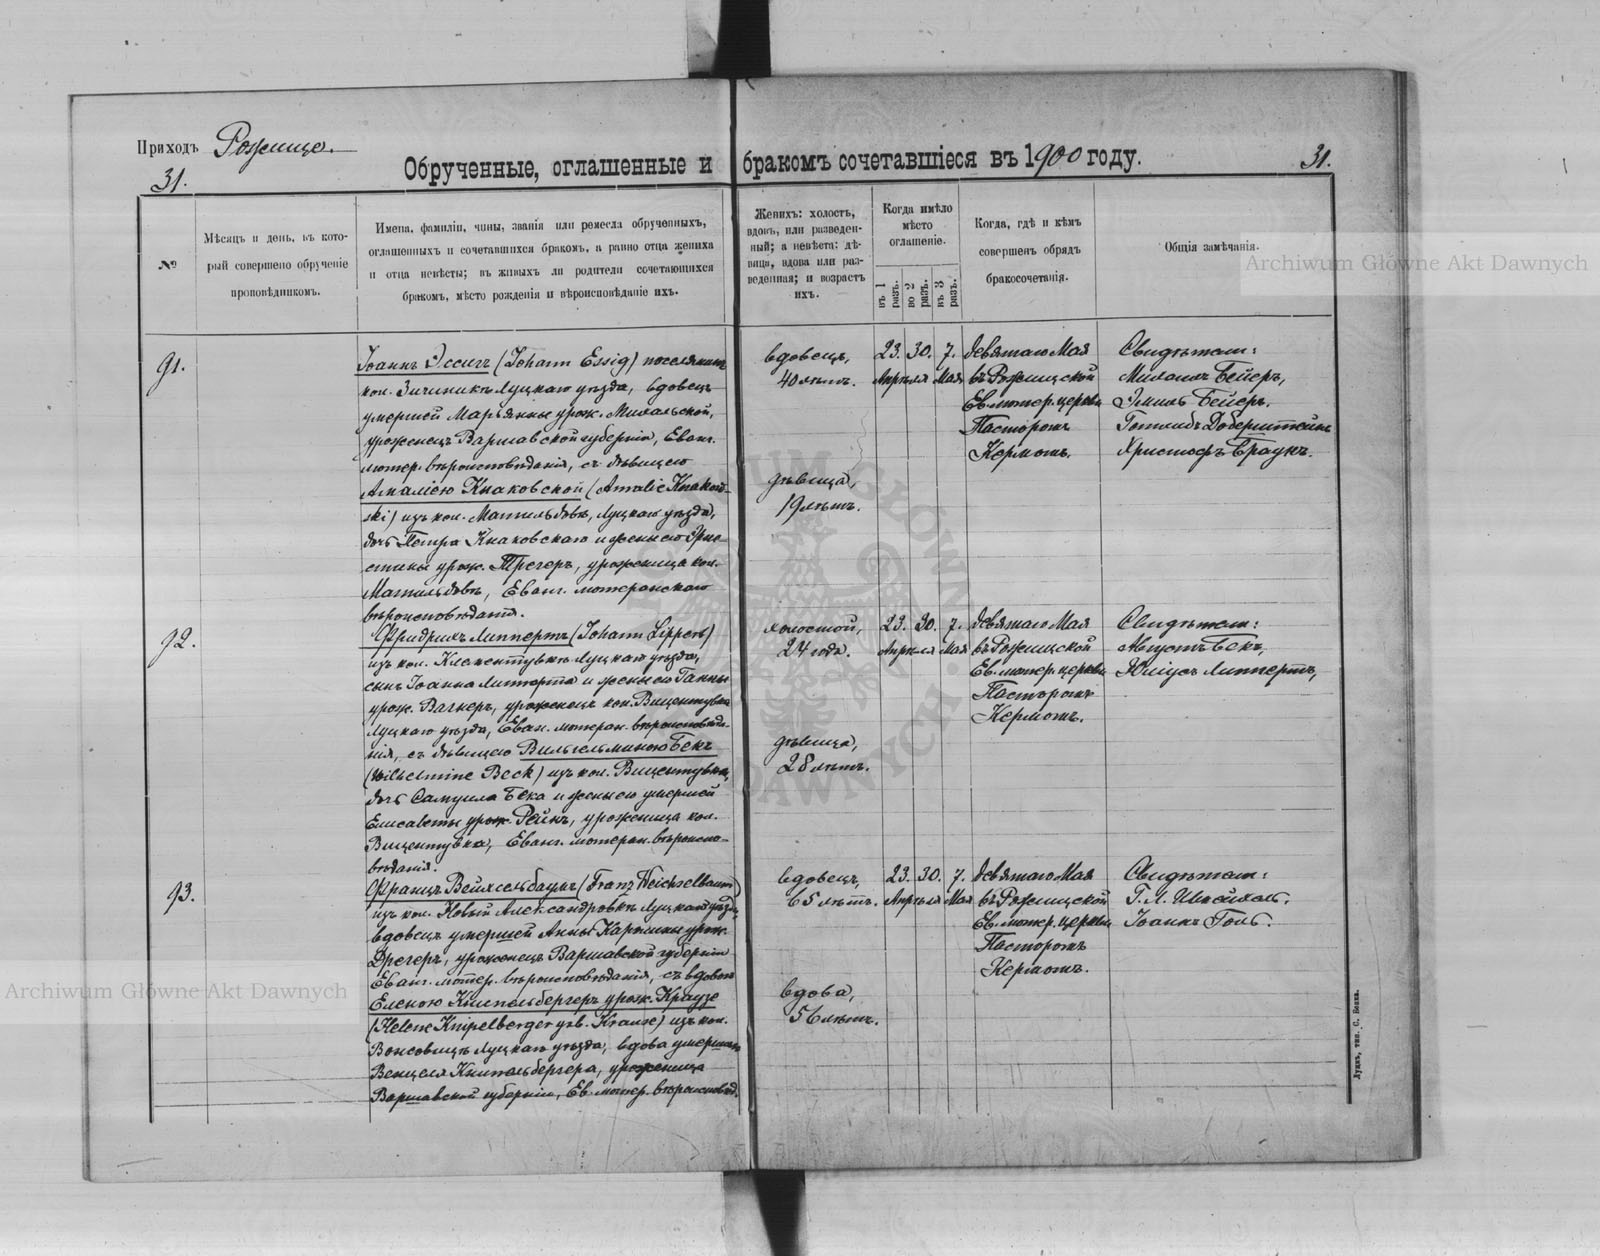 Приходъ Рожище.
31.
Обрученные, оглашенные и бракомъ сочетавшіеся въ 1900 году.
31.
№
Мѣсяцъ и день, въ кото-
рый совершено обрученіе
проповѣдникомъ.
Имена, фамиліи, чины, званія или ремесла обрученныхъ,
оглашенныхъ и сочетавшихся бракомъ, а равно отца жениха
и отца невѣсты; въ живыхъ ли родители сочетающихся
бракомъ, мѣсто рожденія и вѣроисповѣданіе ихъ.
Женихъ: холостъ,
вдовъ, или разведен-
ный; а невѣста: дѣ-
вица, вдова или раз-
веденная; и возрастъ
ихъ.
Когда имѣло
мѣсто
оглашеніе.
въ 1 разъ.
во 2 разъ.
въ 3 разъ.
Когда, гдѣ и кѣмъ
совершенъ обрядъ
бракосочетанія.
Общія замѣчанія.
Archiwum Główne Akt Dawnych
91.
Іоаннъ Эссигъ (Johann Essig) поселянинъ
кол. Луцкаго уѣзда, вдовецъ
умершей Марьянны урож.
уроженецъ Варшавской губерніи, Еванг.
лютер. вѣроисповѣданія, съ дѣвицею
Амаліею Кнаковской (Amalie Knakow-
ski) изъ кол. Матильдовъ, Луцкаго уѣзда,
дочь Петра Кнаковскаго и жены его Эрне-
стины урож. Трегеръ, уроженица кол.
Матильдовъ, Еванг. лютеранскаго
вѣроисповѣданія.
вдовецъ,
40 лѣтъ.
дѣвица,
19 лѣтъ.
23. 30. 7.
Апрѣля Мая
девятаго Мая
въ Рожищской
Ев. лютер. церкви
Пасторомъ
Кермомъ.
Свидѣтели:
Михаилъ Бейеръ,
Эмиль Бейеръ.
Готлибъ Доберштейнъ
Христофъ Браунъ.
92.
Фридрихъ Липпертъ (Johann Lippert)
изъ кол. Клементувка Луцкаго уѣзда,
сынъ Іоанна Липперта и жены его Ганны
урож. Вагнеръ, уроженецъ кол. Вицентувка
Луцкаго уѣзда, Еван. лютеран. вѣроисповѣда-
нія, съ дѣвицею Вильгельминою Бекъ
(Wilhelmine Beck) изъ кол. Вицентувка,
дочь Самуила Бека и жены его умершей
Елисаветы урож. Рейнъ, уроженица кол.
Вицентувка, Еванг. лютеран. вѣроиспо-
вѣданія.
холостой,
24 года.
дѣвица,
28 лѣтъ.
23. 30. 7.
Апрѣля Мая
девятаго Мая
въ Рожищской
Ев. лютер. церкви
Пасторомъ
Кермомъ.
Свидѣтели:
Августъ Бекъ,
Юліусъ Липпертъ,
93.
Францъ Вейхсельбаумъ (Franz Weichselbaum)
изъ кол. Новый Александровкъ Луцкаго уѣзда,
вдовецъ умершей Анны Каролины урож.
Дрегеръ, уроженецъ Варшавской губерніи
Еванг. лютер. вѣроисповѣданія, съ вдовою
Еленою Книпельбергеръ урож. Краузе
(Helene Knipelberger geb. Krause) изъ кол.
Луцкаго уѣзда, вдова умершаго
Венцеля Книпельбергера, уроженица
Варшавской губерніи, Ев. лютер. вѣроисповѣд.
вдовецъ,
65 лѣтъ.
вдова,
56 лѣтъ.
23. 30. 7.
Апрѣля Мая
девятаго Мая
въ Рожищской
Ев. лютер. церкви
Пасторомъ
Кермомъ.
Свидѣтели:
Іоаннъ Голь.
Archiwum Główne Akt Dawnych
Луцкъ, тип. С. Бонка.